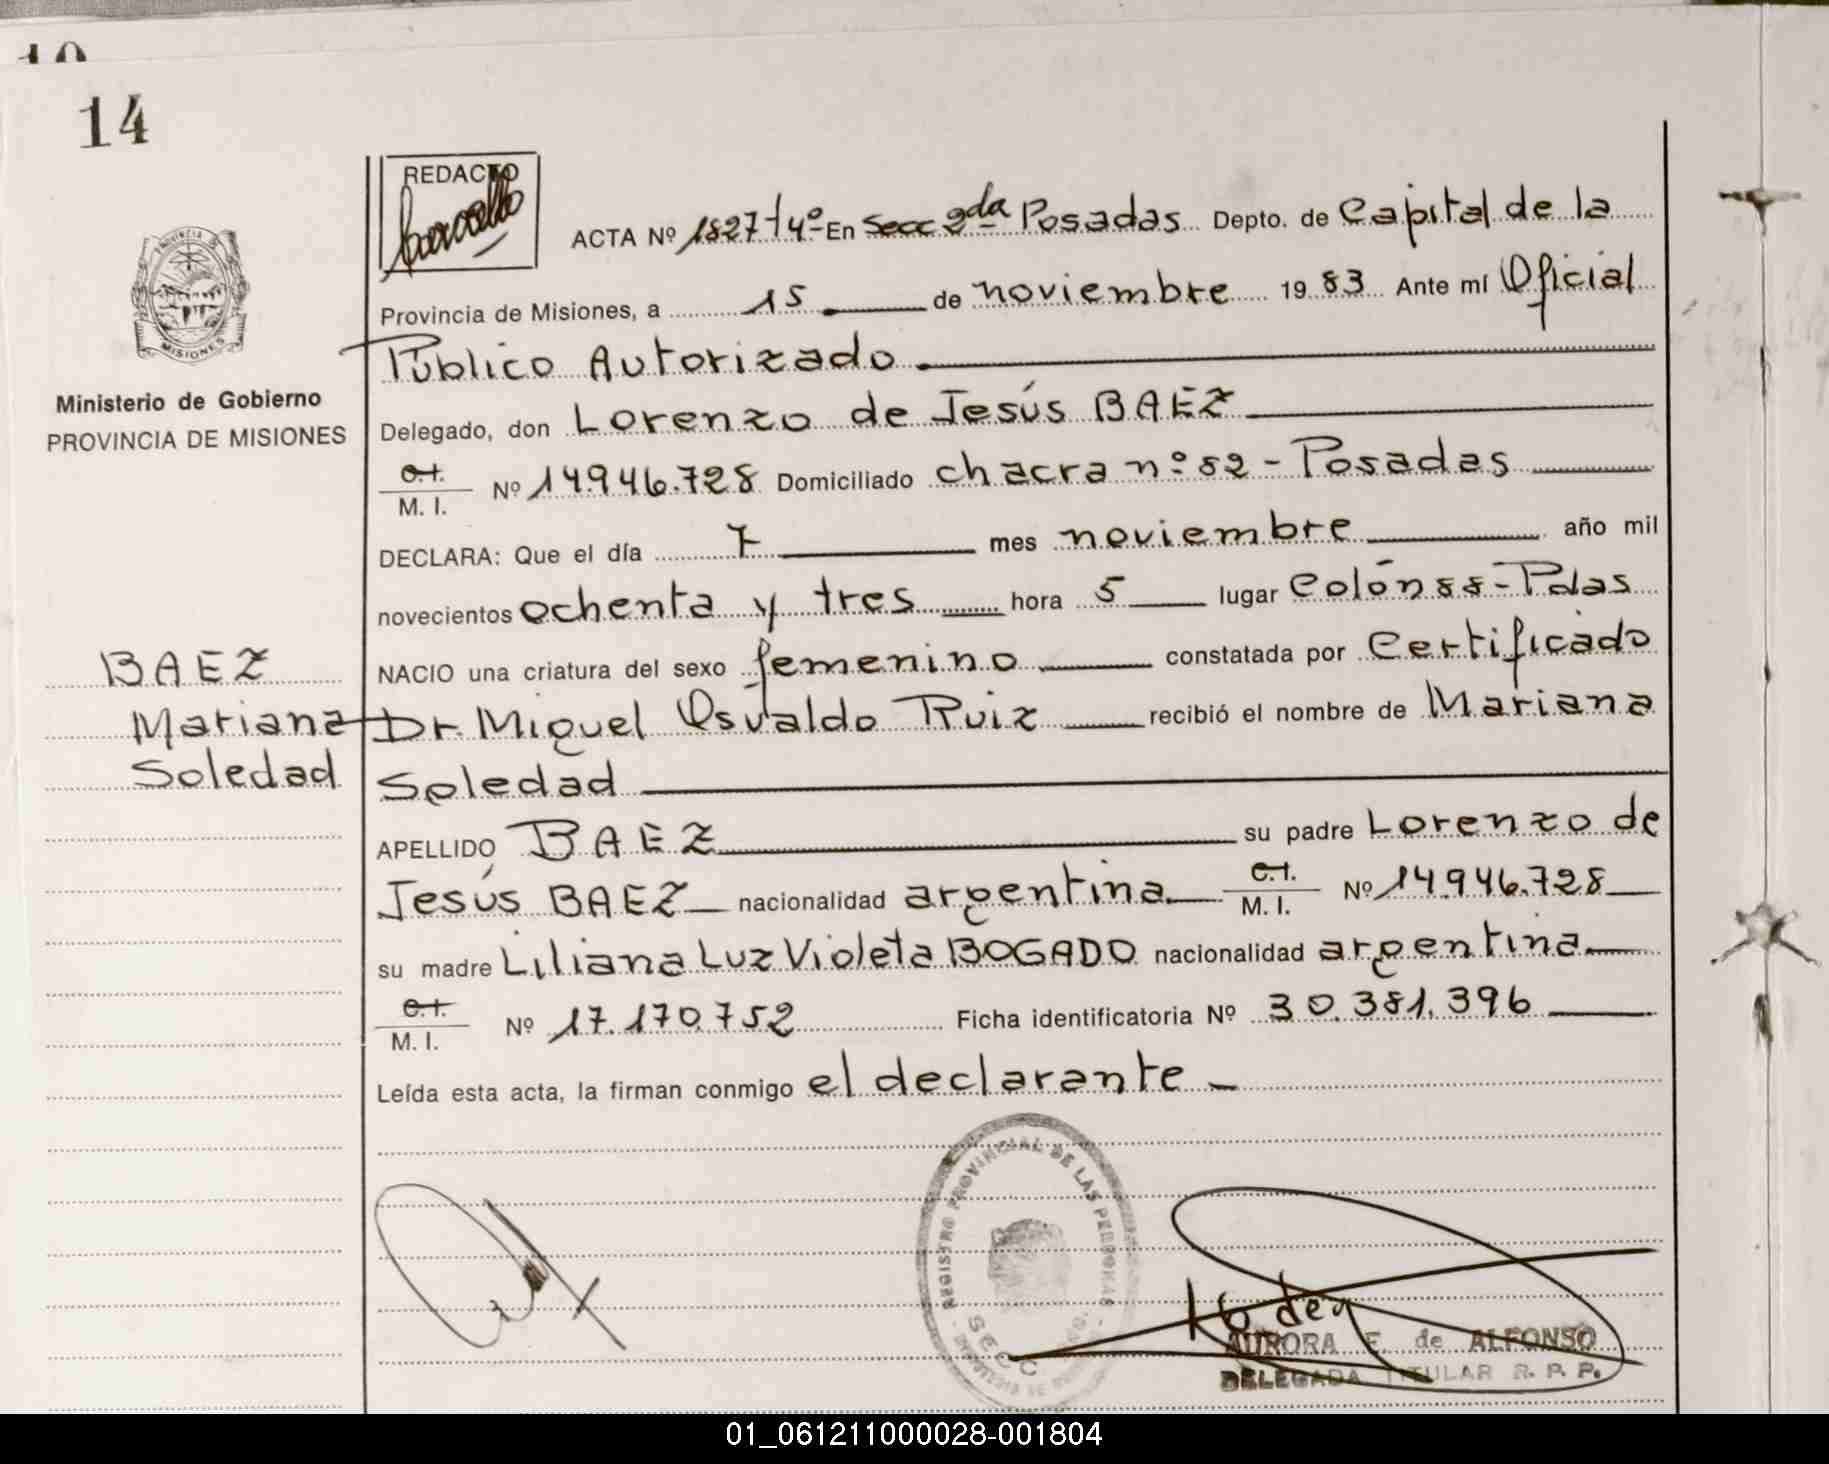 14
REDACTO
ACTA Nº 1827-t4º En Secc 2da Posadas Depto. de Capital de la
Provincia de Misiones, a 15 de noviembre 19 83 Ante mí Oficial
Público Autorizado
Ministerio de Gobierno
PROVINCIA DE MISIONES
Delegado, don Lorenzo de Jesús BAEZ
C.I.
M. I. Nº 14.946.728 Domiciliado chacra nº 82 - Posadas
DECLARA: Que el día 7 mes noviembre año mil
novecientos ochenta y tres hora 5 lugar Colón 88 - Pdas
BAEZ
Mariana
Soledad
NACIO una criatura del sexo femenino constatada por Certificado
Dr. Miguel Osvaldo Ruiz recibió el nombre de Mariana
Soledad
APELLIDO BAEZ su padre Lorenzo de
Jesús BAEZ nacionalidad argentina C.I. M. I. Nº 14.946.728
su madre Liliana Luz Violeta BOGADO nacionalidad argentina
C.I.
M. I. Nº 17.170.752 Ficha identificatoria Nº 30.381.396
Leída esta acta, la firman conmigo el declarante
REGISTRO PROVINCIAL DE LAS PERSONAS
SECC
AURORA E. de ALFONSO
DELEGADA TITULAR R. P. P.
01_061211000028-001804